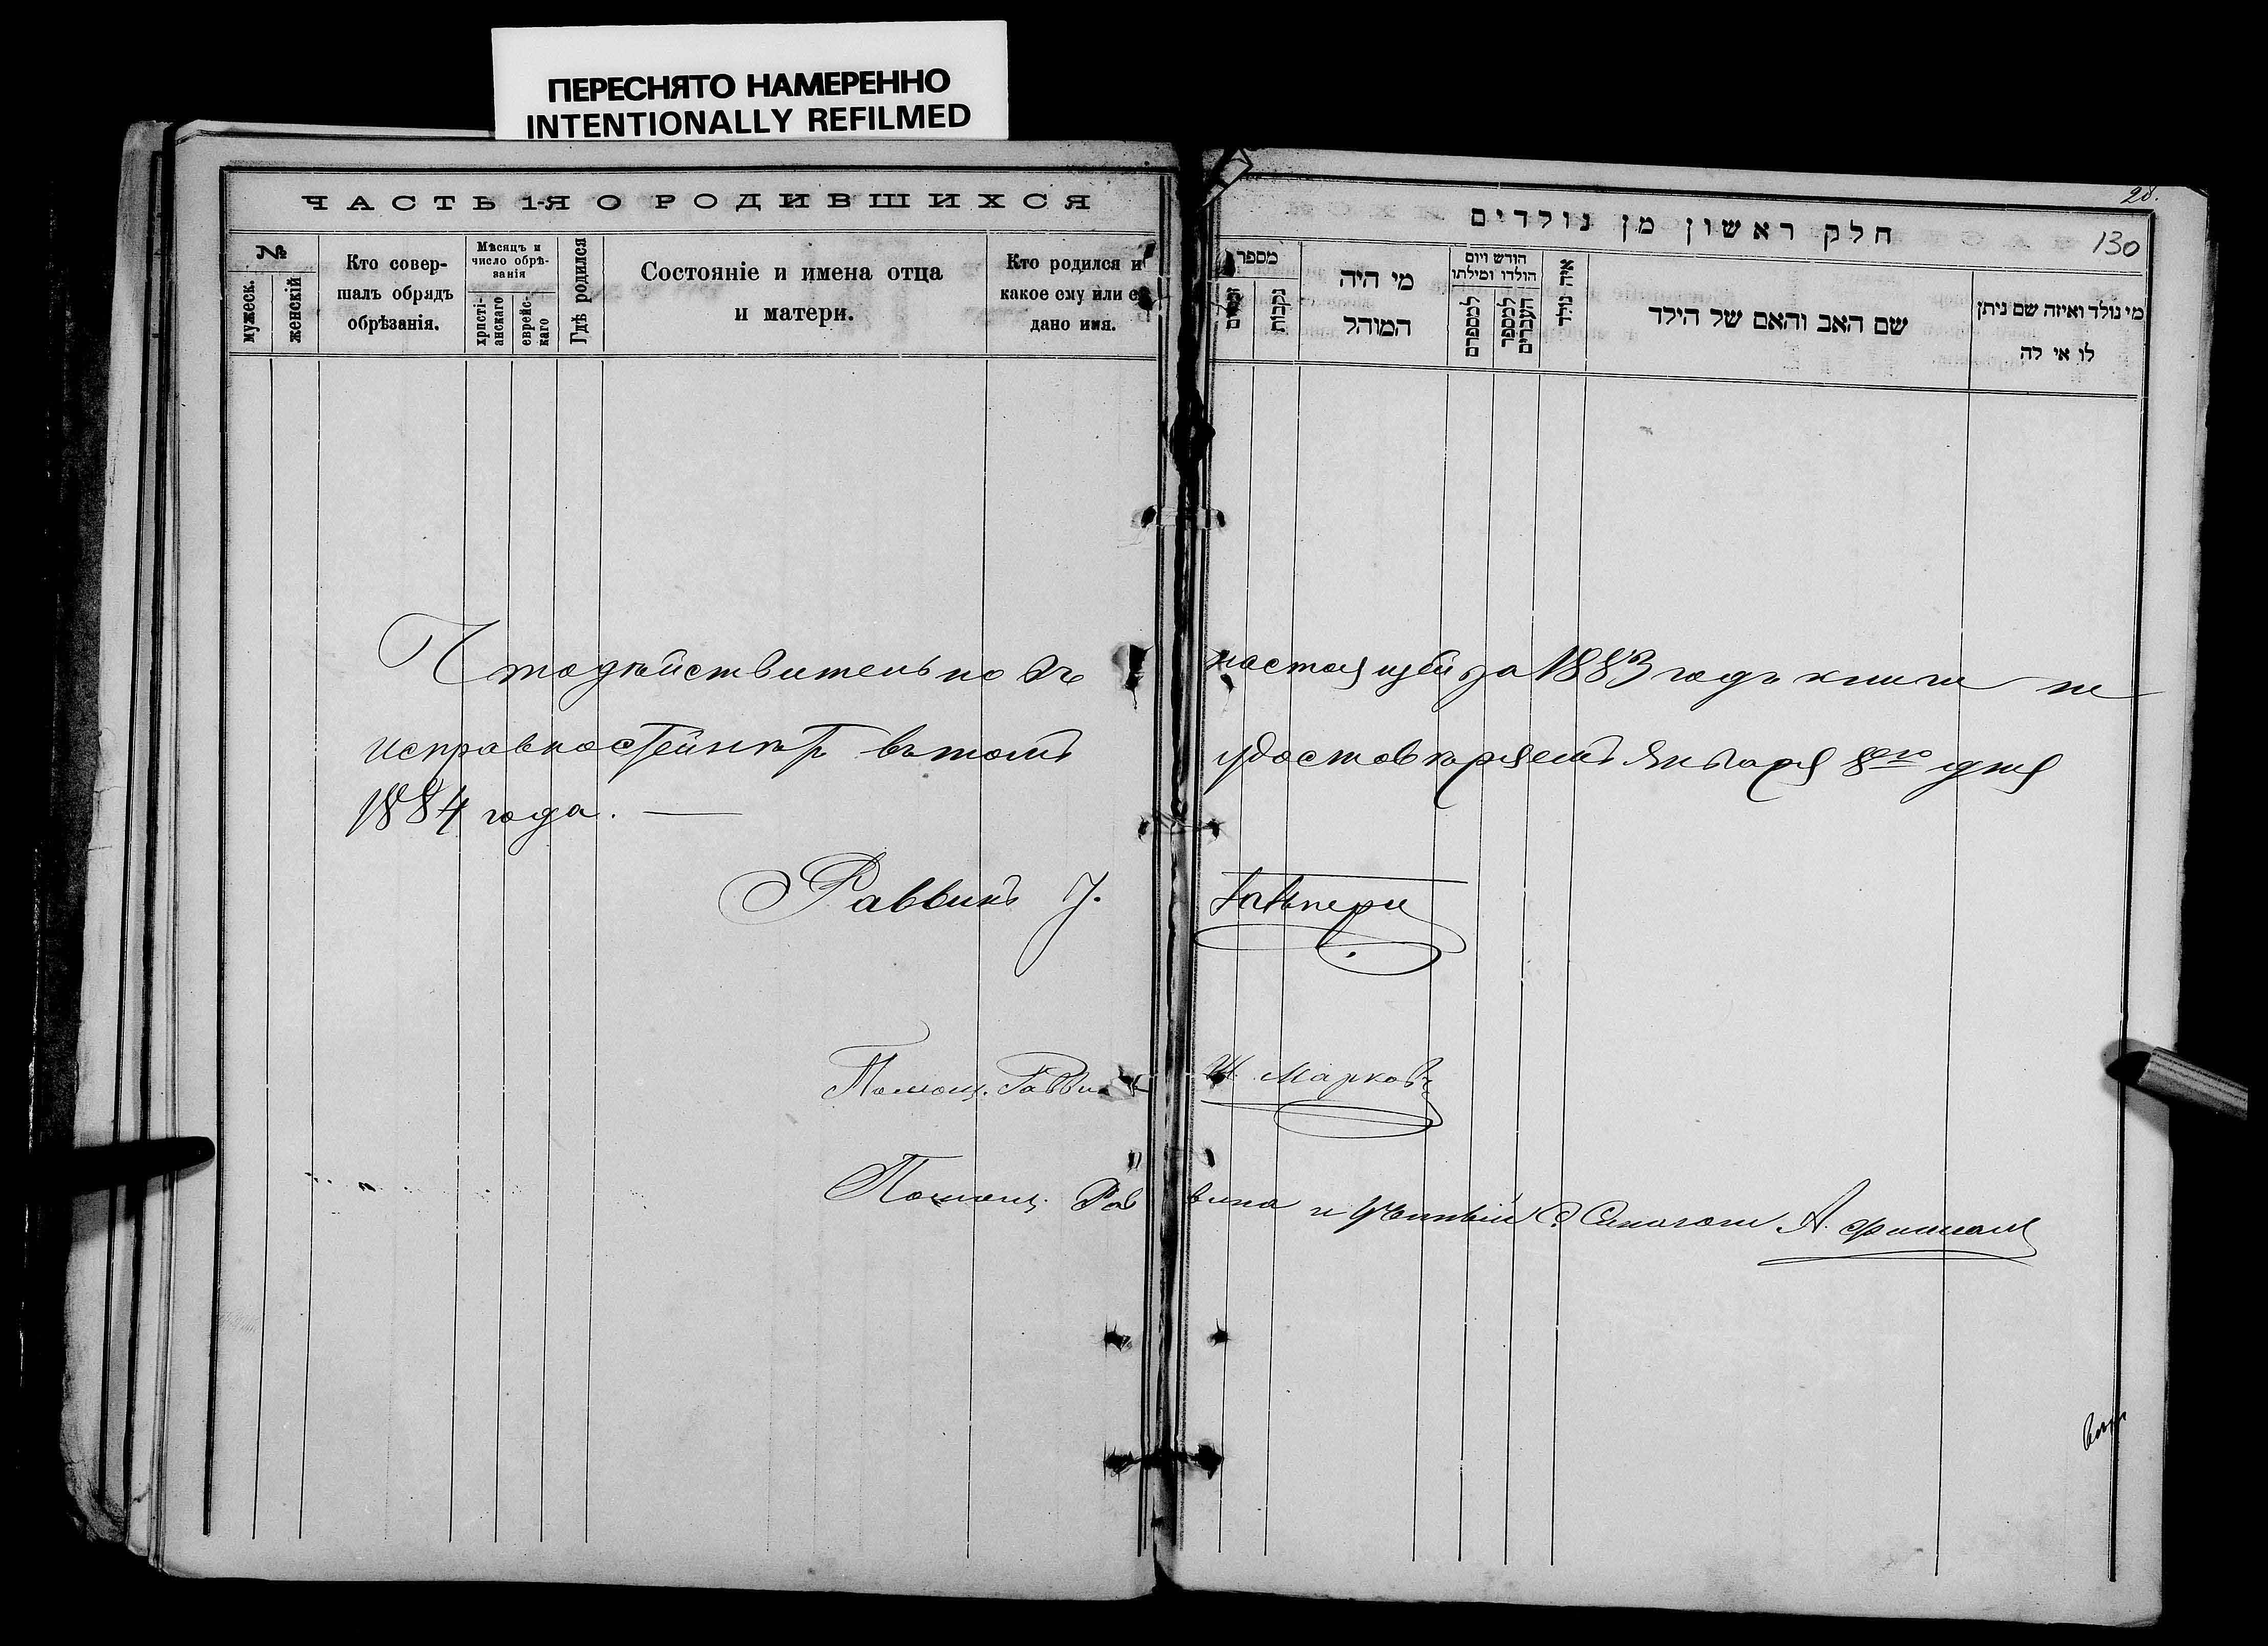 ПЕРЕСНЯТО НАМЕРЕННО
INTENTIONALLY REFILMED
ЧАСТЬ 1-Я О РОДИВШИХСЯ
№
мужеск.
женскій
Кто совер-
шалъ обрядъ
обрѣзанія.
Мѣсяцъ и
число обрѣ-
занія
христі-
анскаго
еврейс-
каго
Гдѣ родился
Состояніе и имена отца
и матери.
Кто родился и
какое ему или
дано имя.
28.
130
חלק ראשון מן נולדים
מספר
נקבות
מי היה
המוהל
חודש ויום
הולדו ומילתו
למספרם
למספר
העברים
איה נולד
שם האב והאם של הילד
מי נולד ואיזה שם ניתן
לו אי לה
Что дѣйствительно въ настоящей за 1883 годъ книги не
исправностей нѣтъ въ томъ удостовѣряемъ Января 8го дня
1884 года. —
Раввинъ
Помощ. Раввин Марковъ
Помощ. Раввина и Ученый А.